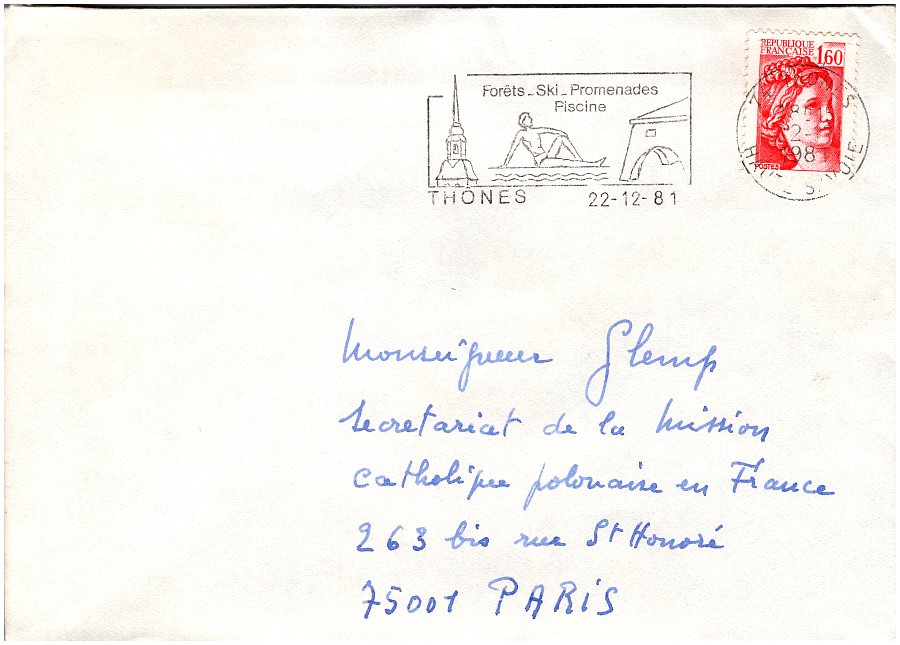 Forêts - Ski - Promenades
Piscine
THONES 22-12-81
REPUBLIQUE
FRANÇAISE 1,60
POSTES
74
HAUTE SAVOIE
Monseigneur Glemp
Secretariat de la Mission
Catholique polonaise en France
263 bis rue St Honoré
75001 PARIS